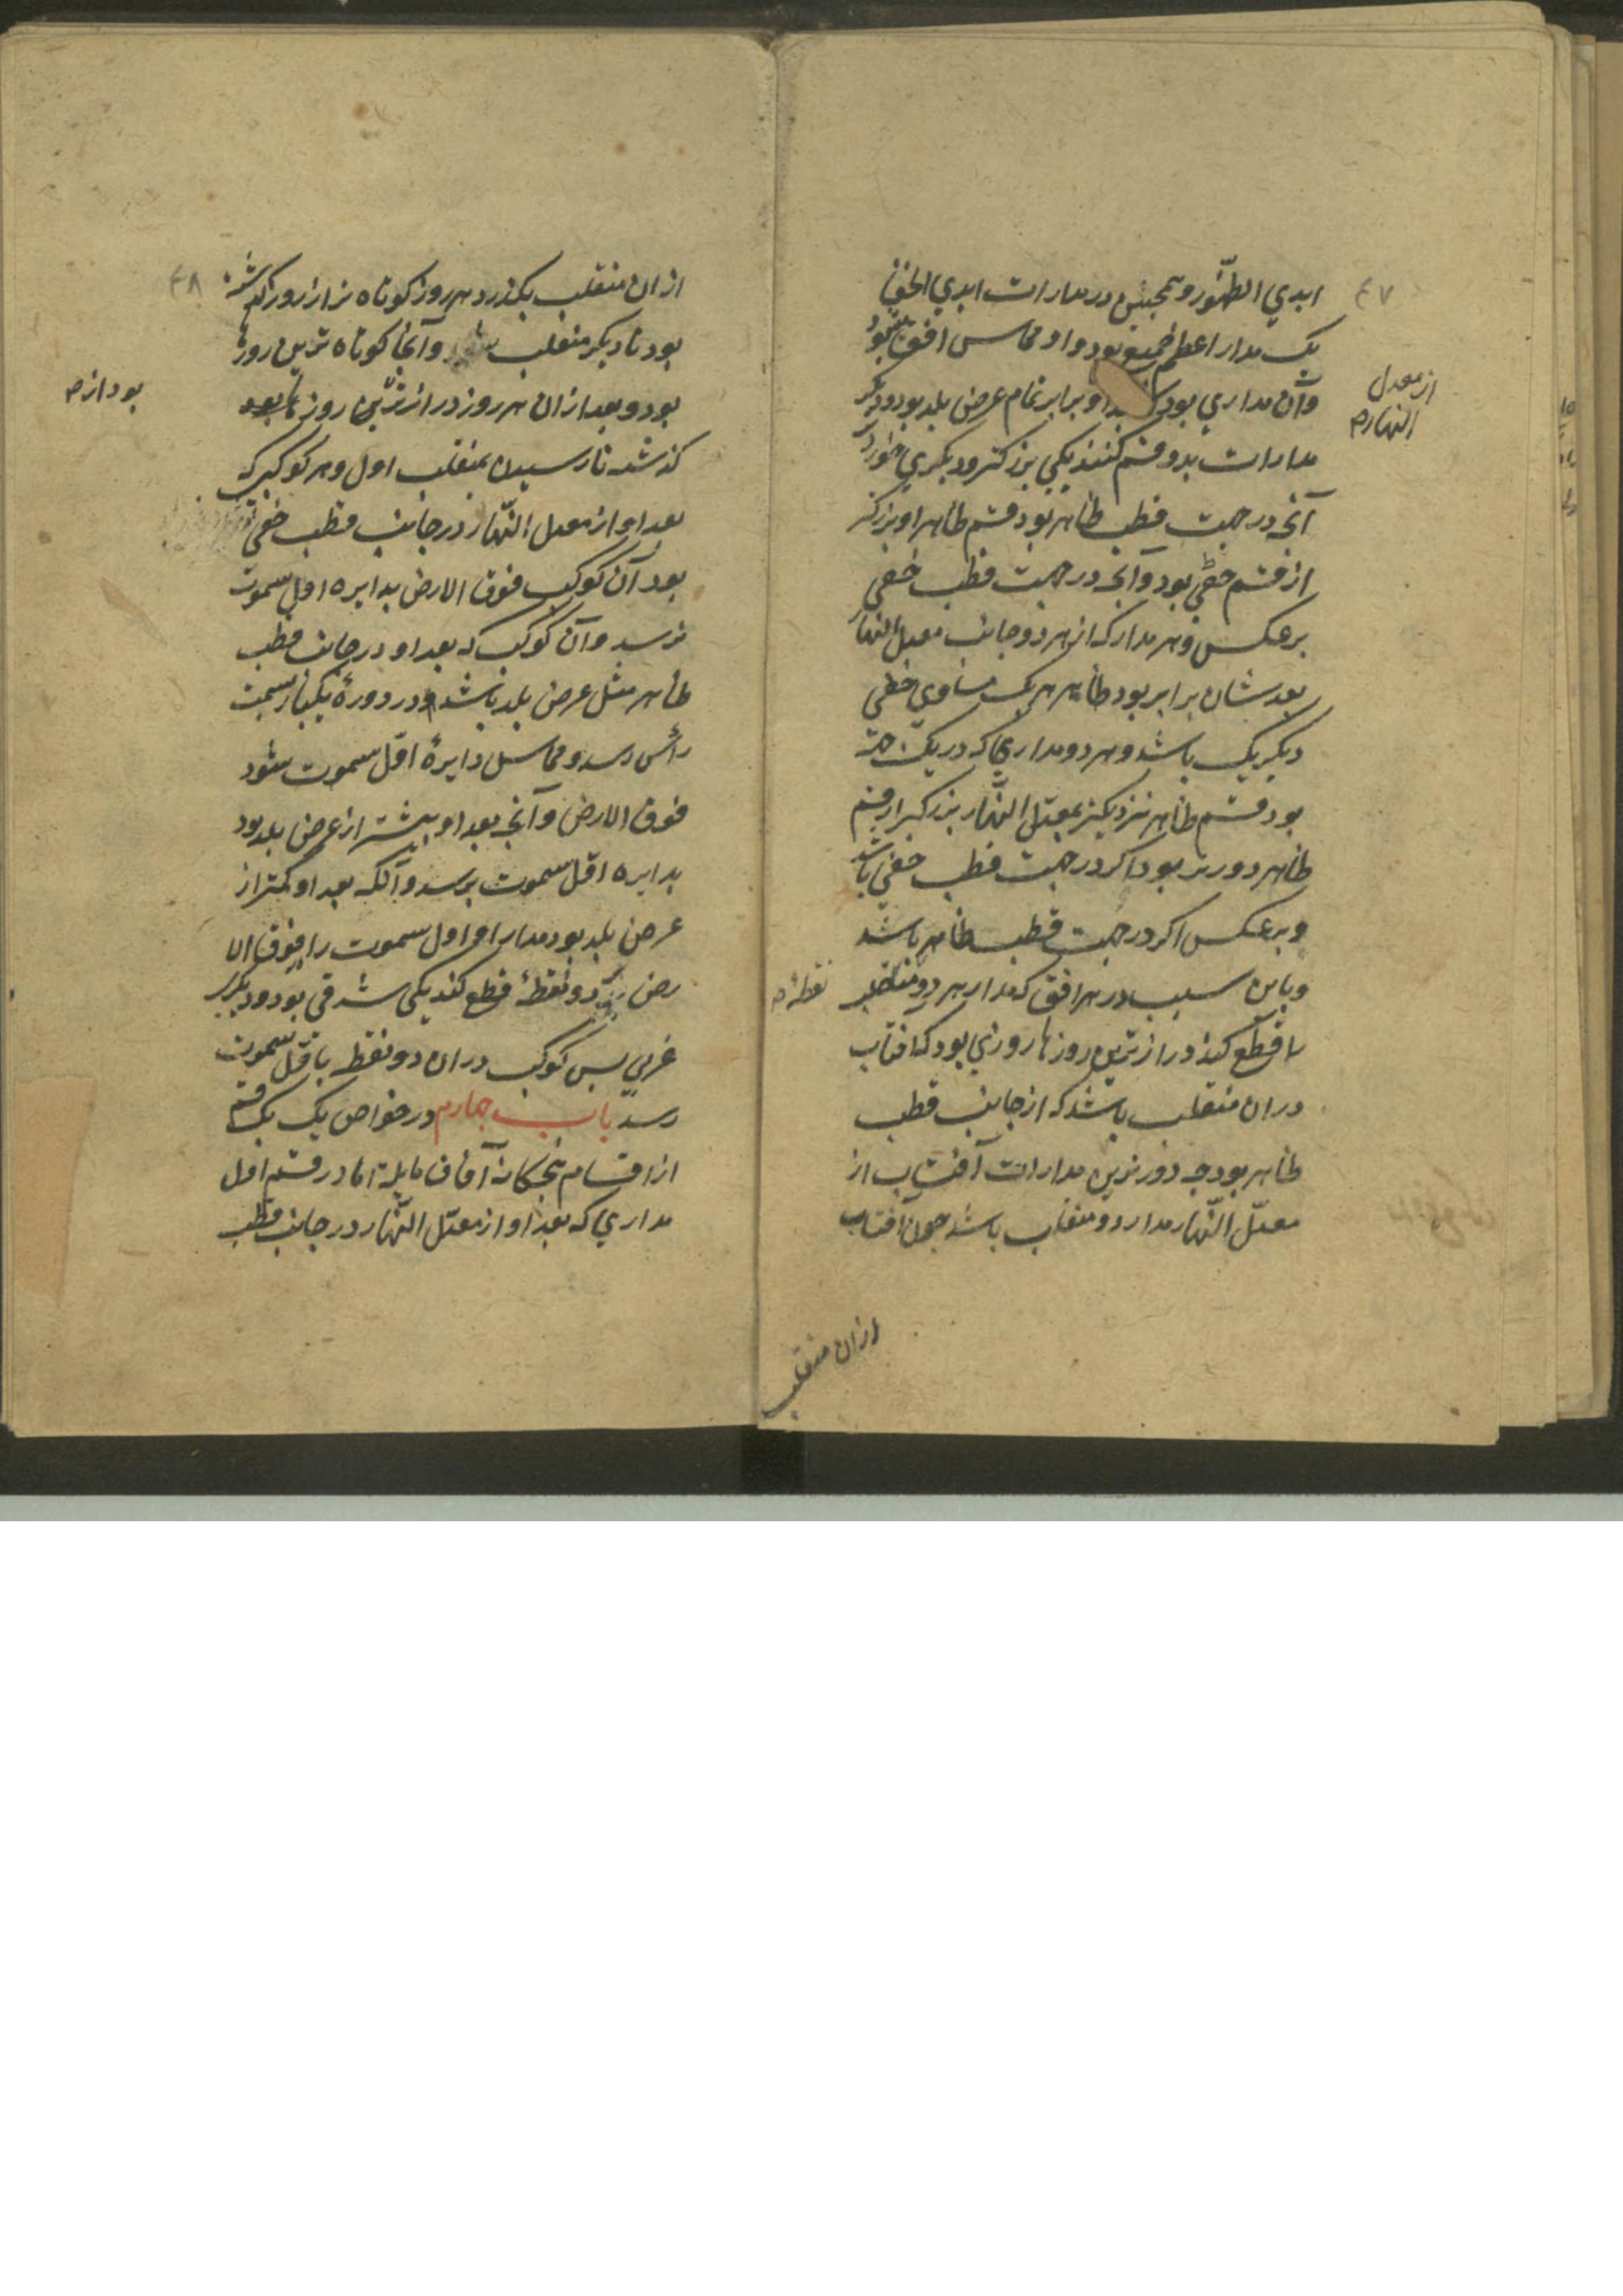 ۴۷
ابدي الظهور و همچنین در مدارات ابدي الخفا
یک مدار اعظم جمیع بود و او مماس افق بود
وآن مداري بود که او برابر تمام عرض بلد بود و دیگر
از معدل
النهار صح
مدارات بدو قسم کنند یکي بزرکتر و دیکري خورد
آنچه در جهت قطب ظاهر بود قسم ظاهر او بزرکتر
از قسم خفي بود و آنچه در جهت قطب خفي
برعکس و هر مدار که از هر دو جانب معدل النهار
بعد شان برابر بود ظاهر هر یک مساوي خفي
دیکر یک باشد و هر دو مداري که در یک جهت
بود قسم ظاهر نزدیکتر بمعدل النهار بزرکتر از قسم
ظاهر دورتر بود اکر در جهت قطب خفي باشد
و برعکس اکر در جهت قطب ظاهر باشد
و باین سبب در هر افق که مدار هر دو منقلب
نقطهٔ صح
را قطع کند درازترین روزها روزي بود که افتاب
دران منقلب باشد که از جانب قطب
ظاهر بود چه دورترین مدارات آفتاب از
معدل النهار مدار دو منقلب باشد چون آفتاب
ازان منقلب
۴۸
ازان منقلب بکذرد هر روز کوتاه تر از روز کذشته
بود تا دیکر منقلب و آنجا کوتاه ترین روزها
بود و بعد ازان هر روز درازتر بین روز
بود از صح
کذشته تا رسیدن بمنقلب اول و هر کوکب که
بعد او از معدل النهار در جانب قطب خفي
بود آن کوکب فوق الارض بدایره اول سموت
نرسد و آن کوکب که بعد او در جانب قطب
ظاهر مثل عرض بلد باشد در دورهٔ یکبار بسمت
رأس رسد و مماس دایرهٔ اول سموت شود
فوق الارض و آنچه بعد او بیشتر از عرض بلد بود
بدایره اول سموت نرسد و آنکه بعد او کمتر از
عرض بلد بود مدار او اول سموت را فوق الا
رض دو نقطهٔ قطع کند یکی شرقی بود و دیکر
غربي پس کوکب دران دو نقطه باول سموت
رسد باب چهارم در خواص یک یک قسم
از اقسام پنجکانه آفاق مایله اما در قسم اول
مداري که بعد او از معدل النهار در جانب قطب